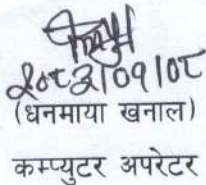 २०८२/०१/०८
(धनमाया खनाल)
कम्प्युटर अपरेटर